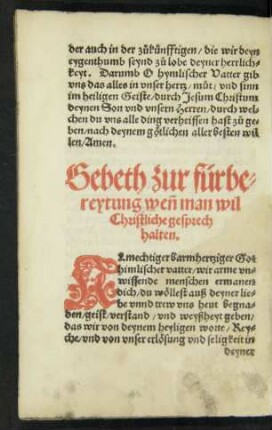 der auch in der zůkünfftigen / die wir deyn
eygenthumb seynd zů lobe deyner herrlich-
keyt. Darumb O hymlischer Vatter gib
vns das alles in vnser hertz / můt / vnd sinn
im heiligen Geiste / durch Jesum Christum
deynen Son vnd vnsern Herren / durch wel-
chen du vns alle ding verheissen hast zů ge-
ben / nach deynem götlichen aller besten wil
len / Amen.
Gebeth zur fürbe-
reytung weñ man wil
Christliche gesprech
halten.
Almechtiger barmhertziger Got
himlischer vatter / wir arme vn-
wissende menschen ermanen
dich / du wöllest auß deyner lie-
be vnnd trew vns heut begna-
den / geist / verstand / vnd weyßheyt geben /
das wir von deynem heyligen worte / Rey-
che / vnd von vnser erlösung vnd seligkeit in
deyner